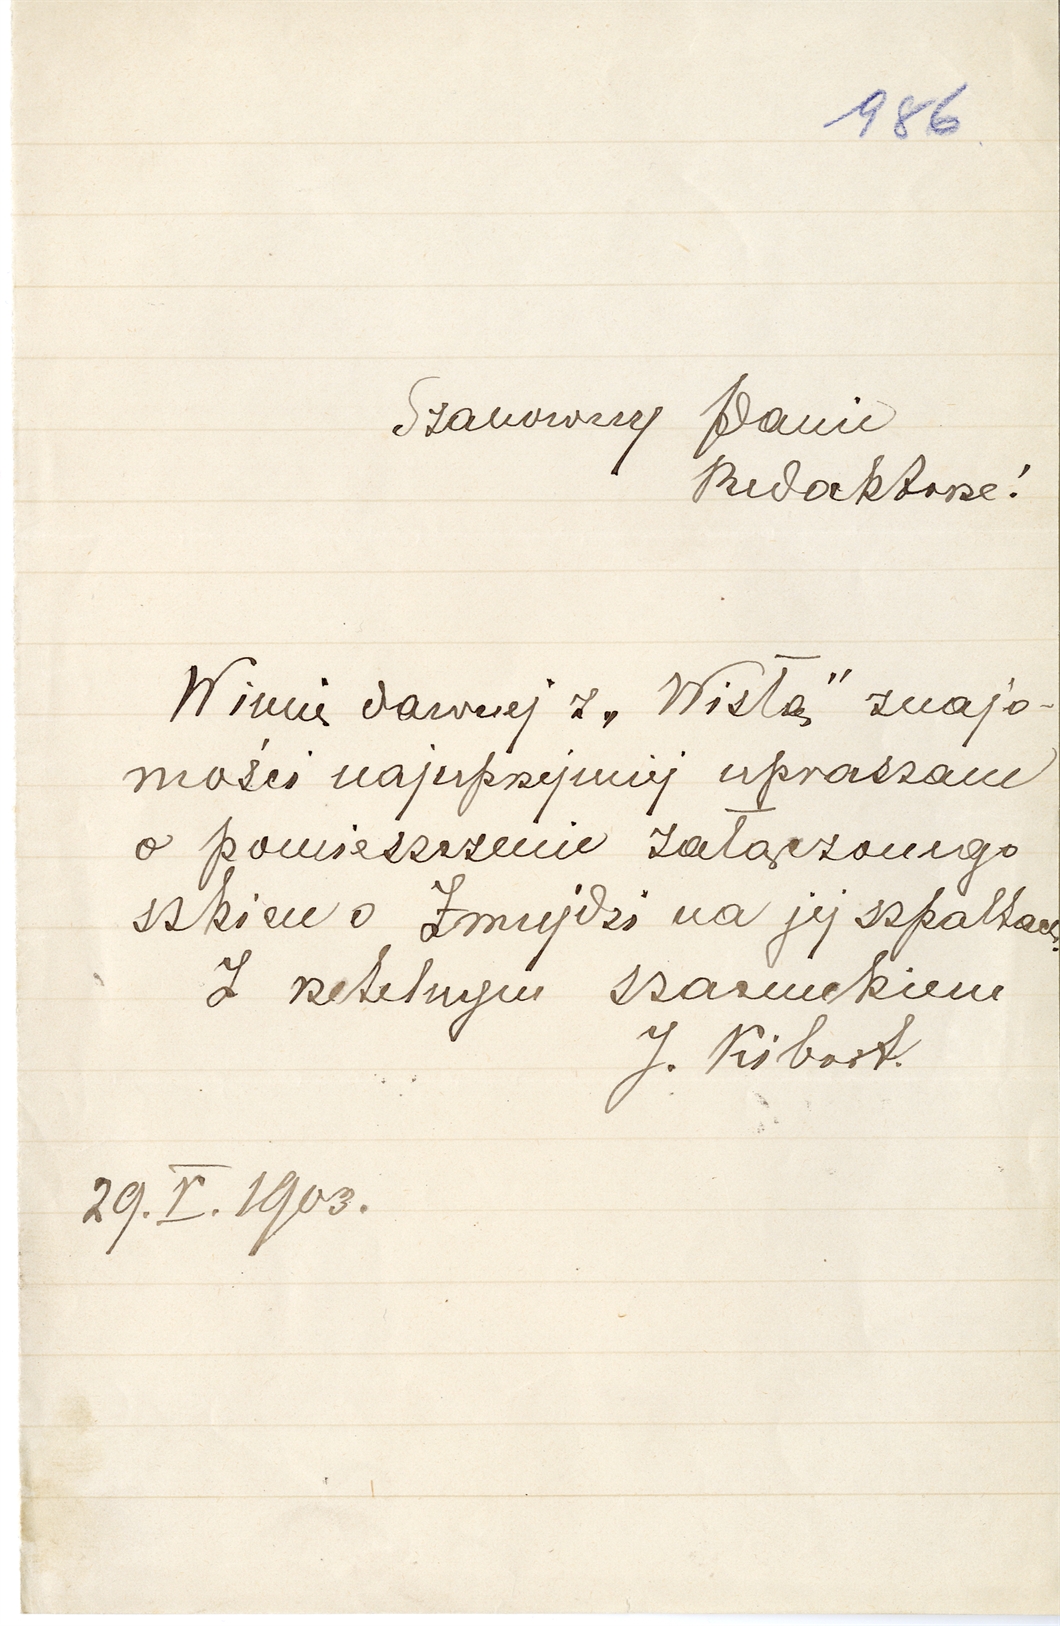 986
Szanowny Panie
Redaktorze!
W imię dawnej z „Wisłą" znajo-
mości najuprzejmiej upraszam
o pomieszczenie załączonego
szkicu o Żmujdzi na jej szpaltach.
Z rzetelnym szacunkiem
J. Kibort.
29.V.1903.